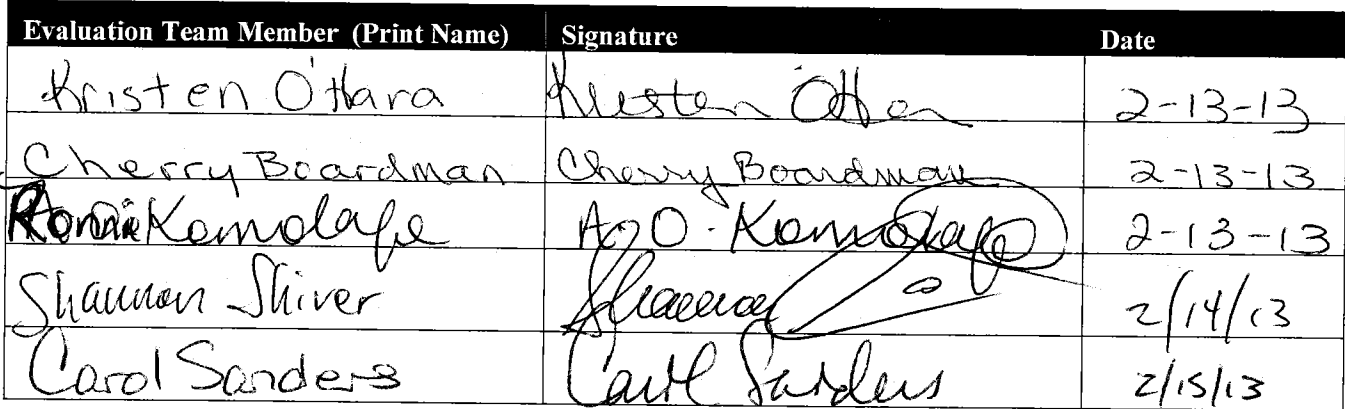 Evaluation Team Member (Print Name) Signature Date
Kristen O'Hara Kristen O'Hara 2-13-13
Cherry Boardman Cherry Boardman 2-13-13
Ronni Komolafe A.O. Komolafe 2-13-13
Shannon Shiver Shannon 2/14/13
Carol Sanders Carol Sanders 2/15/13